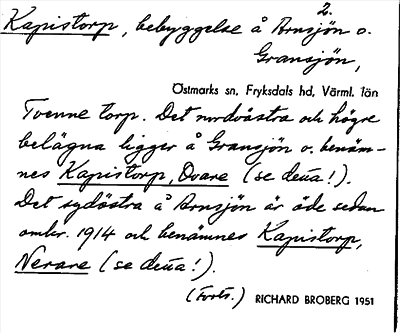 2.
Kapistorp, bebyggelse å Arnsjön o.
Gransjön,
Östmarks sn, Fryksdals hd, Värml. län
Tvenne torp. Det nordvästra och högre
belägna ligger å Gransjön o. benäm-
nes Kapistorp, Övare (se detta!).
Det sydöstra å Arnsjön är öde sedan
omkr. 1914 och benämnes Kapistorp,
Nerare (se detta!).
(Forts.) RICHARD BROBERG 1951